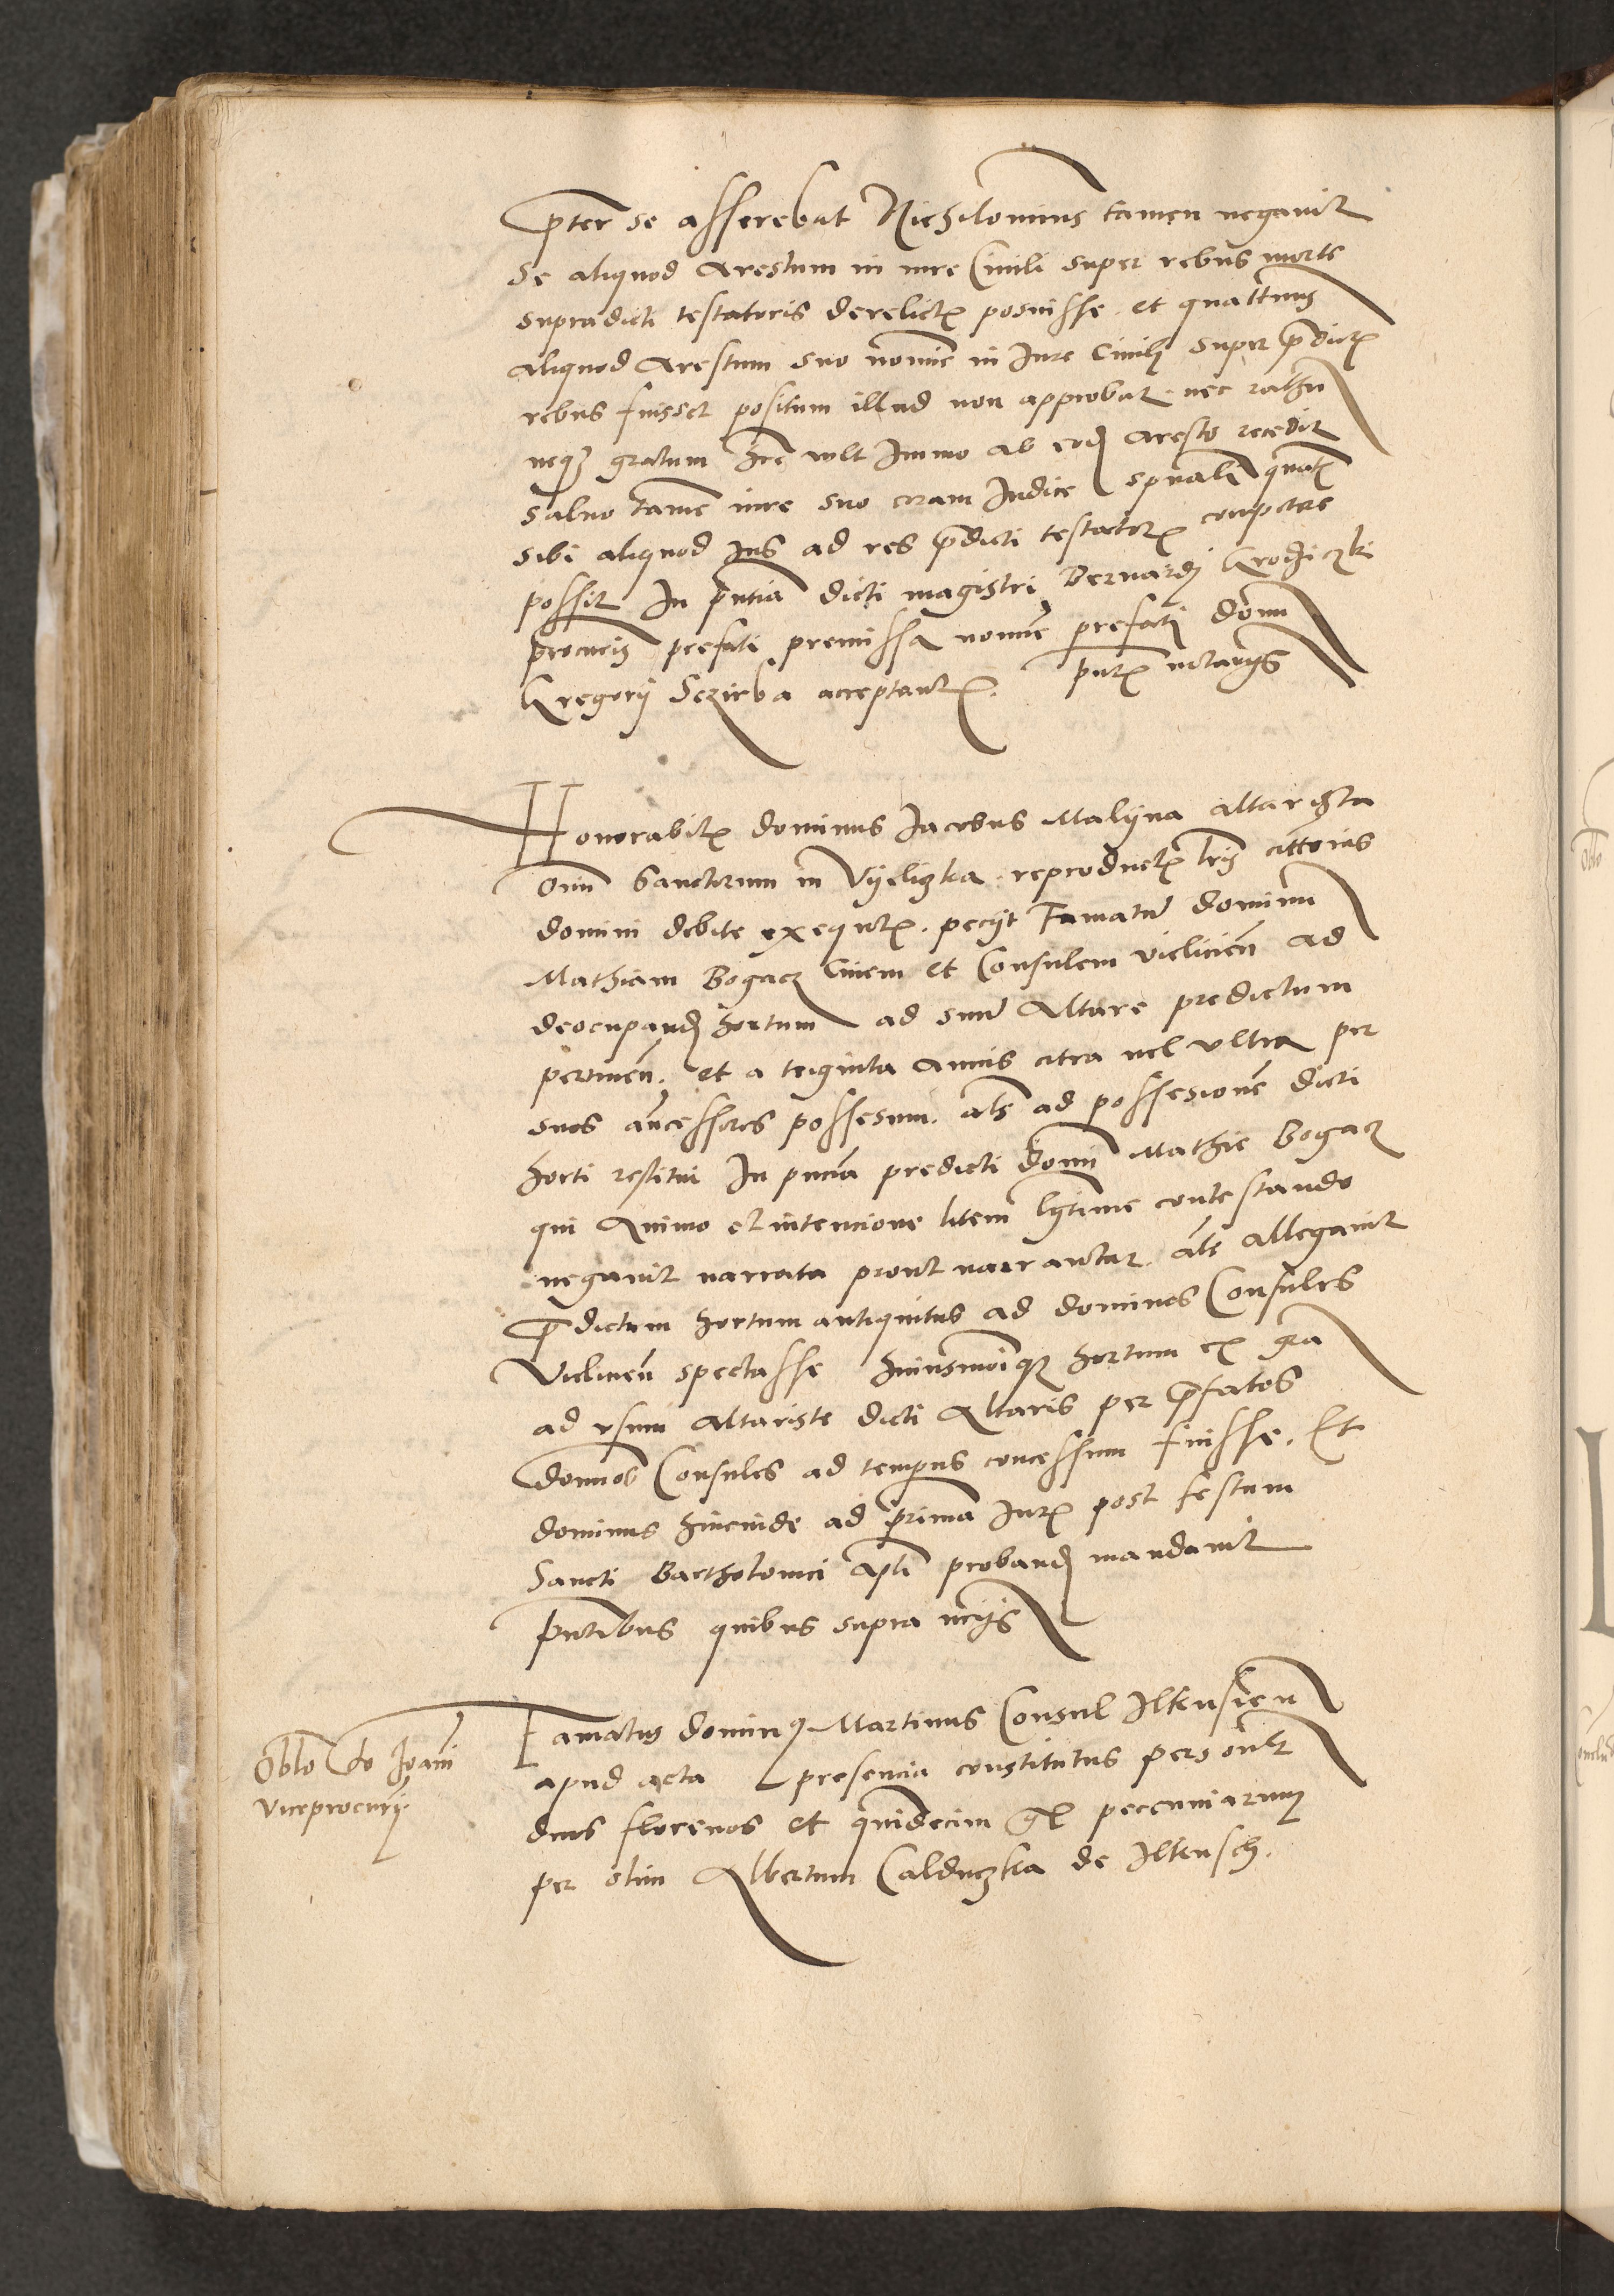 pter se asserebat Nichilominus tamen negavit
se aliquod Arestum in iure Civili super rebus morte
supradicti testatoris derelictis posuisse et quattenus
aliquod Arestum suo nomine in Iure Civili super p̄dictis
rebus fuisset positum illud non approbat nec rathu
neq3 gratum hr̄e vult Immo ab eod aresto recedit
salvo tamē iure suo coram Iudice spūali quat
sibi aliquod Ius ad res p̄dicti testatoris competere
possit In p̄ntia dicti magistri Bernardi
procuris prefati premissa nomine prefati dom̄
Gregorii Sczirba acceptantis. p̄ntibus notariis
Honorabilis dominus Jacobus Malyna altarista
Om̄ Sanctorum in Vyelizka reproductis lr̄is cittorias
domini debite exequtis. pecyt Famatū dominū
Mathiam Bogacz Civem et Consulem vielicien̄ ad
deocupand hortum ad suū Altare predictum
pertinen̄. et a triginta annis citra vel ultra per
suos an̄cessores possesum. als ad possesionē dicti
horti restitui In p̄ncia predicti dom̄ Mathie Bogacz
qui Animo et intencione litem lytime contestando
negavit narrata prout narrantur. als Allegavit
p̄dictum hortum antiquitus ad dominos Consules
Vielicien̄ spectasse huiusmōi q3 hortum ex gr̄a
ad usum Altariste dicti Altaris per p̄fatos
dom̄os Consules ad tempus concessum fuisse. Et
dominus hincinde ad primā Iuris post festum
Sancti Bartholomei apli proband mandavit
p̄ntibus quibus supra
Famatus dominus Martinus Consul Ilkusien̄
apud acta presencia constitutus personlr
duos florenos et quindecim gr peccuniarum
per olim Albertum Calduczka de Ilkusch.
Obl̄o do Joanī
viceprocurii